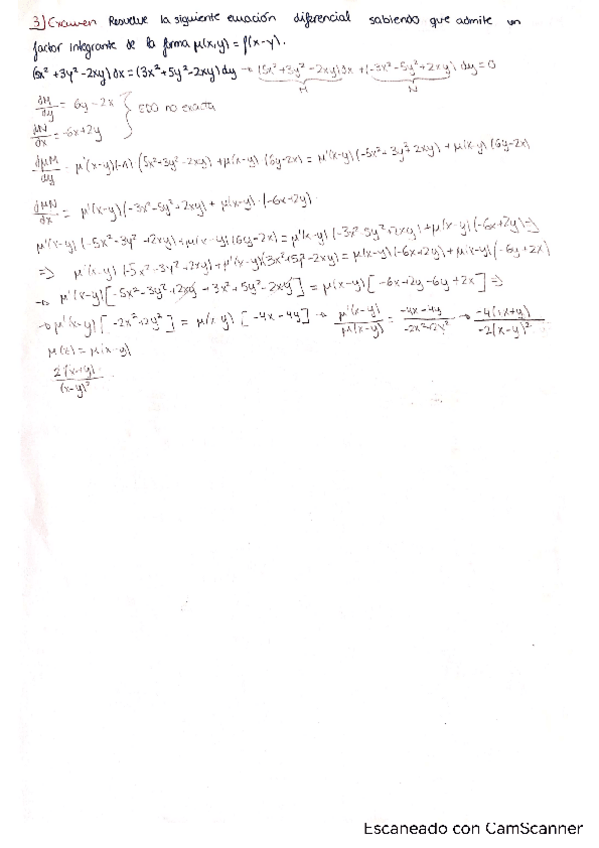 3) Examen Resuelve la siguiente ecuación diferencial sabiendo que admite un
factor integrante de la forma μ(x,y) = f(x-y).
(5x² + 3y² - 2xy) dx = (3x² + 5y² - 2xy) dy → (5x² + 3y² - 2xy) dx + (-3x² - 5y² + 2xy) dy = 0
M N
dM/dy = 6y - 2x
EDO no exacta
dN/dx = -6x + 2y
dμM/dy = μ'(x-y)(-1) (5x² - 3y² - 2xy) + μ(x-y) (6y-2x) = μ'(x-y) (-5x² - 3y² + 2xy) + μ(x-y) (6y-2x)
dμN/dx = μ'(x-y) (-3x² - 5y² + 2xy) + μ(x-y) · (-6x+2y)
μ'(x-y) (-5x² - 3y² + 2xy) + μ(x-y) (6y-2x) = μ'(x-y) (-3x² - 5y² + 2xy) + μ(x-y) (-6x+2y) ⇒
⇒ μ'(x-y) (-5x² - 3y² + 2xy) + μ'(x-y) (3x² + 5y² - 2xy) = μ(x-y) (-6x+2y) + μ(x-y) (-6y+2x)
→ μ'(x-y) [-5x² - 3y² + 2xy + 3x² + 5y² - 2xy] = μ(x-y) [-6x + 2y - 6y + 2x] ⇒
→ μ'(x-y) [-2x² + 2y²] = μ(x-y) [-4x - 4y] → μ'(x-y)/μ(x-y) = -4x-4y/-2x²+2y² → -4(x+y)/-2(x-y)²
μ(z) = μ(x-y)
2(x+y)/(x-y)²
Escaneado con CamScanner